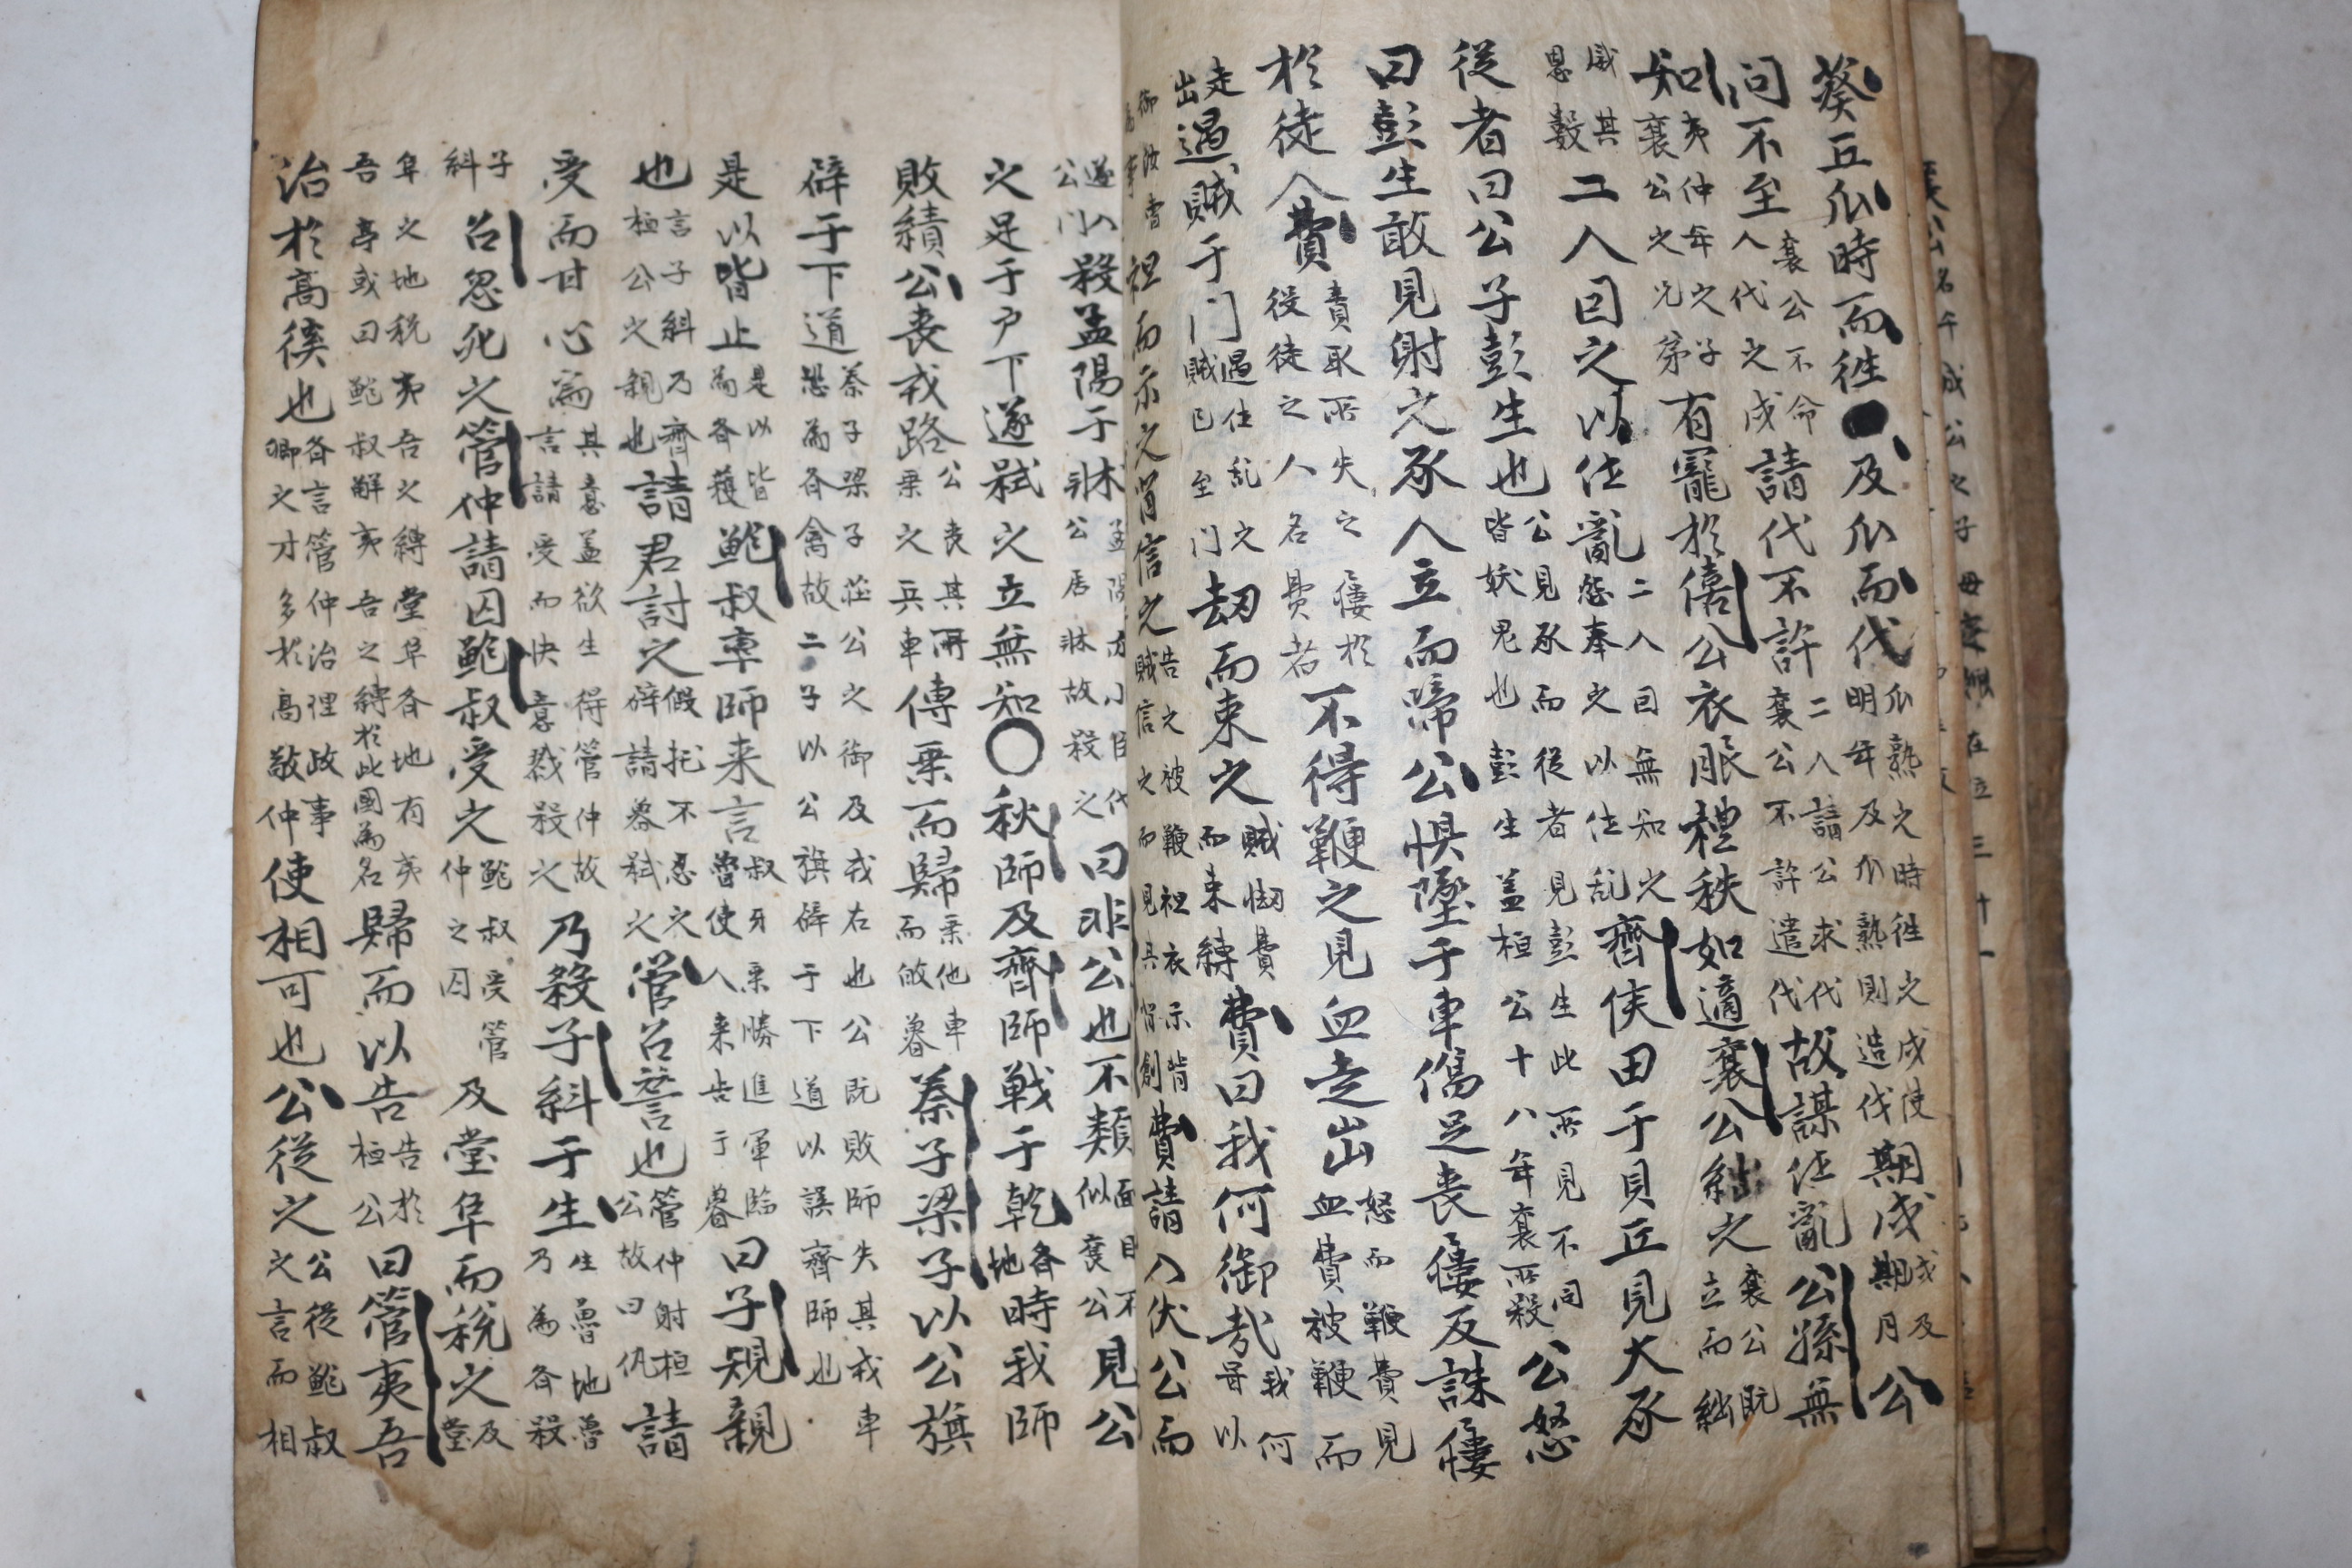 葵丘瓜時而徃及瓜而代瓜熟之時徃之戍使明年及瓜熟則造伐期戍戍及期月公
問不至襄公不命人代之戍請代不許二人請公求代襄公不許遣代故謀作亂公孫無
知夷仲年之子襄公之兄弟有寵於僖公衣服禮秩如適襄公絀之襄公既立而絀
其恩數二人因之以作亂二人因無知之怨奉之以作乱齊侯田于貝丘見大豕
從者曰公子彭生也公見豕而從者見彭生此所見不同皆妖鬼也彭生盖桓公十八年襄所殺公怒
曰彭生敢見射之豕人立而啼公惧墜于車傷足喪屨反誅屨
於徒人費責取所失之屨於役徒之人名費者不得鞭之見血走出怒而鞭費見血費被鞭而
走出遇賊于门遇作乱之賊已至门刧而束之賊刧費而束縛費曰我何御哉我何曷以
御汝曹為事袒而示之背信之告之被鞭袒衣示背賊信之而見其背創費請入伏公而
遂入公门殺孟陽于牀孟陽亦小臣代公居牀故殺之曰非公也不類面目不似襄公見公
之足于户下遂弑之立無知〇秋師及齊師戦于乾时齐地時我師
敗績公喪戎路公喪其所乗之兵車傳乗而歸乗他車而敀魯秦子梁子以公旗
辟于下道秦子梁子莊公之御及戎右也公既敗師失其戎車恐為齐禽故二子以公旗辟于下道以誤齊師也
是以皆止是以皆為齐獲鮑叔率師来言叔牙乗勝進軍臨魯使人来告于魯曰子糾親
也言子糾乃齊桓公之親也請君討之假托不忍之辞請魯弑之管召讐也管仲射桓公故曰仇請
受而甘心焉其意盖欲生得管仲故言請受而快意戮殺之乃殺子糾于生生魯地魯乃為齐殺
子糾召忽死之管仲請囚鮑叔受之鮑叔受管仲之囚及堂阜而税之及堂
阜之地税夷吾之縛堂阜齐地有夷吾亭或曰鮑叔解夷吾之縛於此國為名歸而以告告於桓公曰管夷吾
治於高徯也齐言管仲治理政事卿之才多於高敬仲使相可也公從之公從鮑叔之言而相